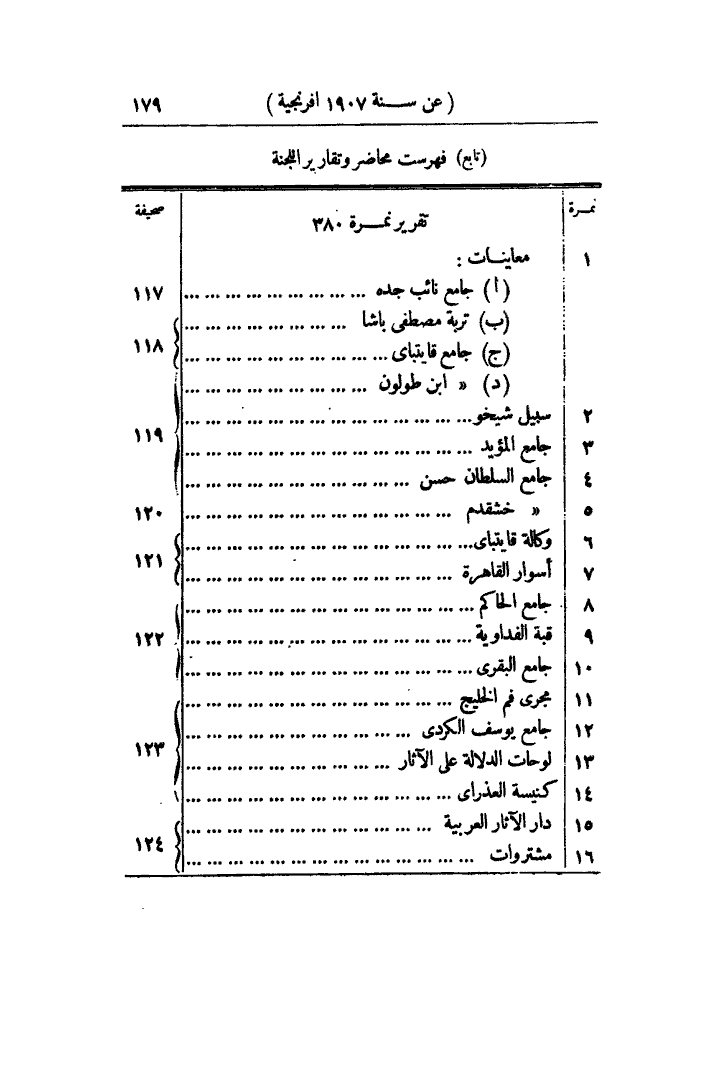 (عن ســنة ١٩٠٧ افرنجية) ١٧٩
(تابع) فهرست محاضر وتقارير اللجنة
نمـرة صحيفة
تقرير نمـــرة ٣٨٠
١ معاينـات :
(أ) جامع نائب جده ... ... ... ... ... ... ... ... ... ١١٧
(ب) تربة مصطفى باشا ... ... ... ... ... ... ... ...
(ج) جامع قايتباى ... ... ... ... ... ... ... ... ... ... ١١٨
(د) » ابن طولون ... ... ... ... ... ... ... ... ...
٢ سبيل شيخو... ... ... ... ... ... ... ... ... ... ... ... ... ...
٣ جامع المؤيد ... ... ... ... ... ... ... ... ... ... ... ... ... ... ١١٩
٤ جامع السلطان حسن ... ... ... ... ... ... ... ... ... ... ...
٥ » خشقدم ... ... ... ... ... ... ... ... ... ... ... ... ... ١٢٠
٦ وكالة قايتباى... ... ... ... ... ... ... ... ... ... ... ... ... ...
٧ أسوار القاهرة ... ... ... ... ... ... ... ... ... ... ... ... ... ١٢١
٨ جامع الحاكم ... ... ... ... ... ... ... ... ... ... ... ... ... ...
٩ قبة الفداوية ... ... ... ... ... ... ... ... ... ... ... ... ... ... ١٢٢
١٠ جامع البقرى ... ... ... ... ... ... ... ... ... ... ... ... ... ...
١١ مجرى فم الخليج ... ... ... ... ... ... ... ... ... ... ... ... ...
١٢ جامع يوسف الكردى ... ... ... ... ... ... ... ... ... ... ... ...
١٣ لوحات الدلالة على الآثار ... ... ... ... ... ... ... ... ... ... ١٢٣
١٤ كنيسة العذراى ... ... ... ... ... ... ... ... ... ... ... ... ...
١٥ دار الآثار العربية ... ... ... ... ... ... ... ... ... ... ... ...
١٦ مشتروات ... ... ... ... ... ... ... ... ... ... ... ... ... ... ١٢٤